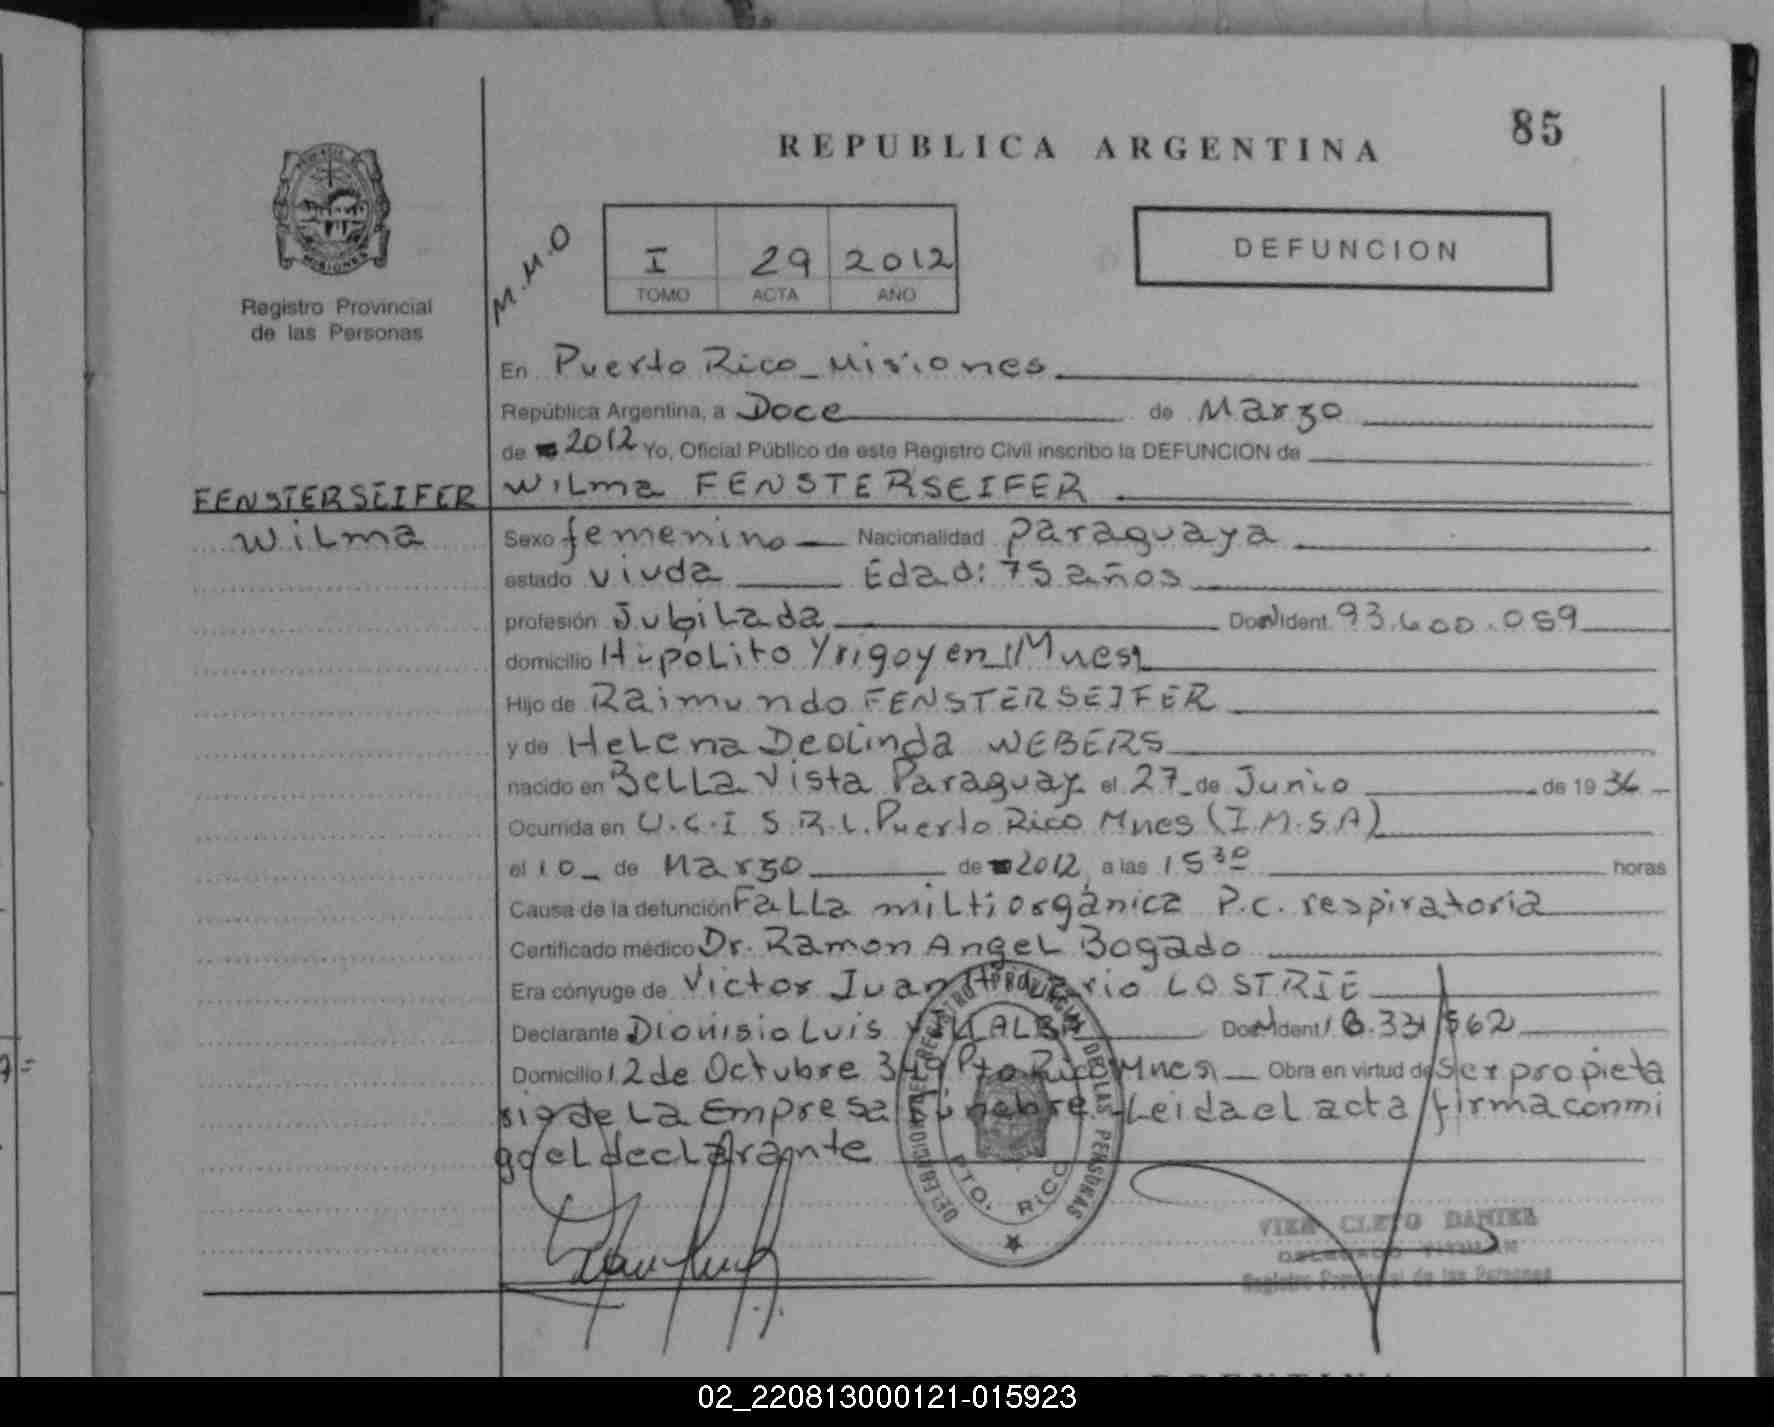 85
REPUBLICA ARGENTINA
M.M.O
I 29 2012
TOMO ACTA AÑO
DEFUNCION
MISIONES
Registro Provincial
de las Personas
En Puerto Rico - Misiones
República Argentina, a Doce de Marzo
de 2012 Yo, Oficial Público de este Registro Civil inscribo la DEFUNCION de
FENSTERSEIFER
Wilma
Wilma FENSTERSEIFER
Sexo femenino Nacionalidad paraguaya
estado viuda Edad: 75 años
profesión Jubilada Doc. Ident. 93.600.059
domicilio Hipolito Yrigoyen Mnes
Hijo de Raimundo FENSTERSEIFER
y de Helena Deolinda WEBERS
nacido en Bella Vista Paraguay el 27 de Junio de 1936
Ocurrida en U.C.I S.R.L. Puerto Rico Mnes (I.M.S.A)
el 10 de Marzo de 2012, a las 15 30 horas
Causa de la defunción Falla miltiorgánica P.c. respiratoria
Certificado médico Dr. Ramon Angel Bogado
Era cónyuge de Victor Juan LOSTRIE
Declarante Dionisio Luis VILLALBA Ident 18.331.562
Domicilio 12 de Octubre 349 Pto Rico Mnes Obra en virtud de ser propieta
rio de La Empresa Funebre. Leida el acta firma conmi
go el declarante
REGISTRO PROVINCIAL DE LAS PERSONAS
PTO. RICO
VIER CLETO DANIEL
DELEGADO TITULAR
Registro Provincial de las Personas
ARGENTINA
02_220813000121-015923